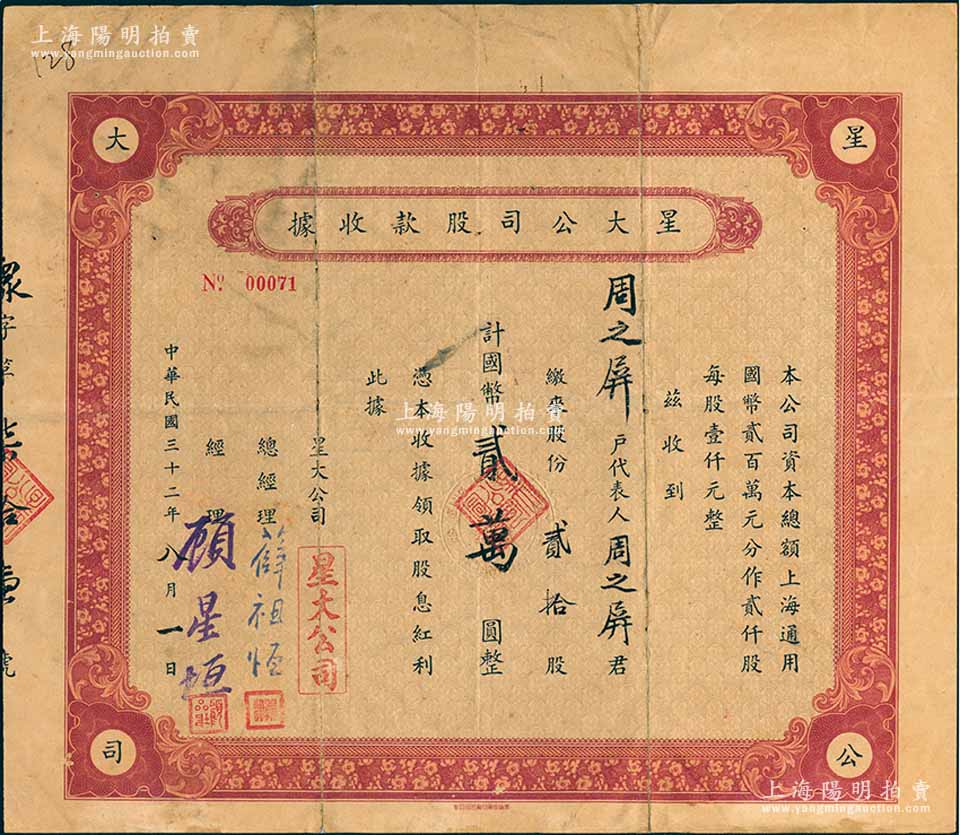 上海陽明拍賣
www.yangmingauction.com
128
星
大
公
司
星大公司股款收據
No. 00071
本公司資本總額上海通用
國幣貳百萬元分作貳仟股
每股壹仟元整
茲收到
周之屏戶代表人周之屏君
繳來股份貳拾股
計國幣貳萬圓整
憑本收據領取股息紅利
此據
星大公司
星大公司
總經理薛祖恒
經理顧星垣
中華民國三十二年八月一日
字第柒拾壹號
上海陽明拍賣
www.yangmingauction.com
上海陽明拍賣
www.yangmingauction.com